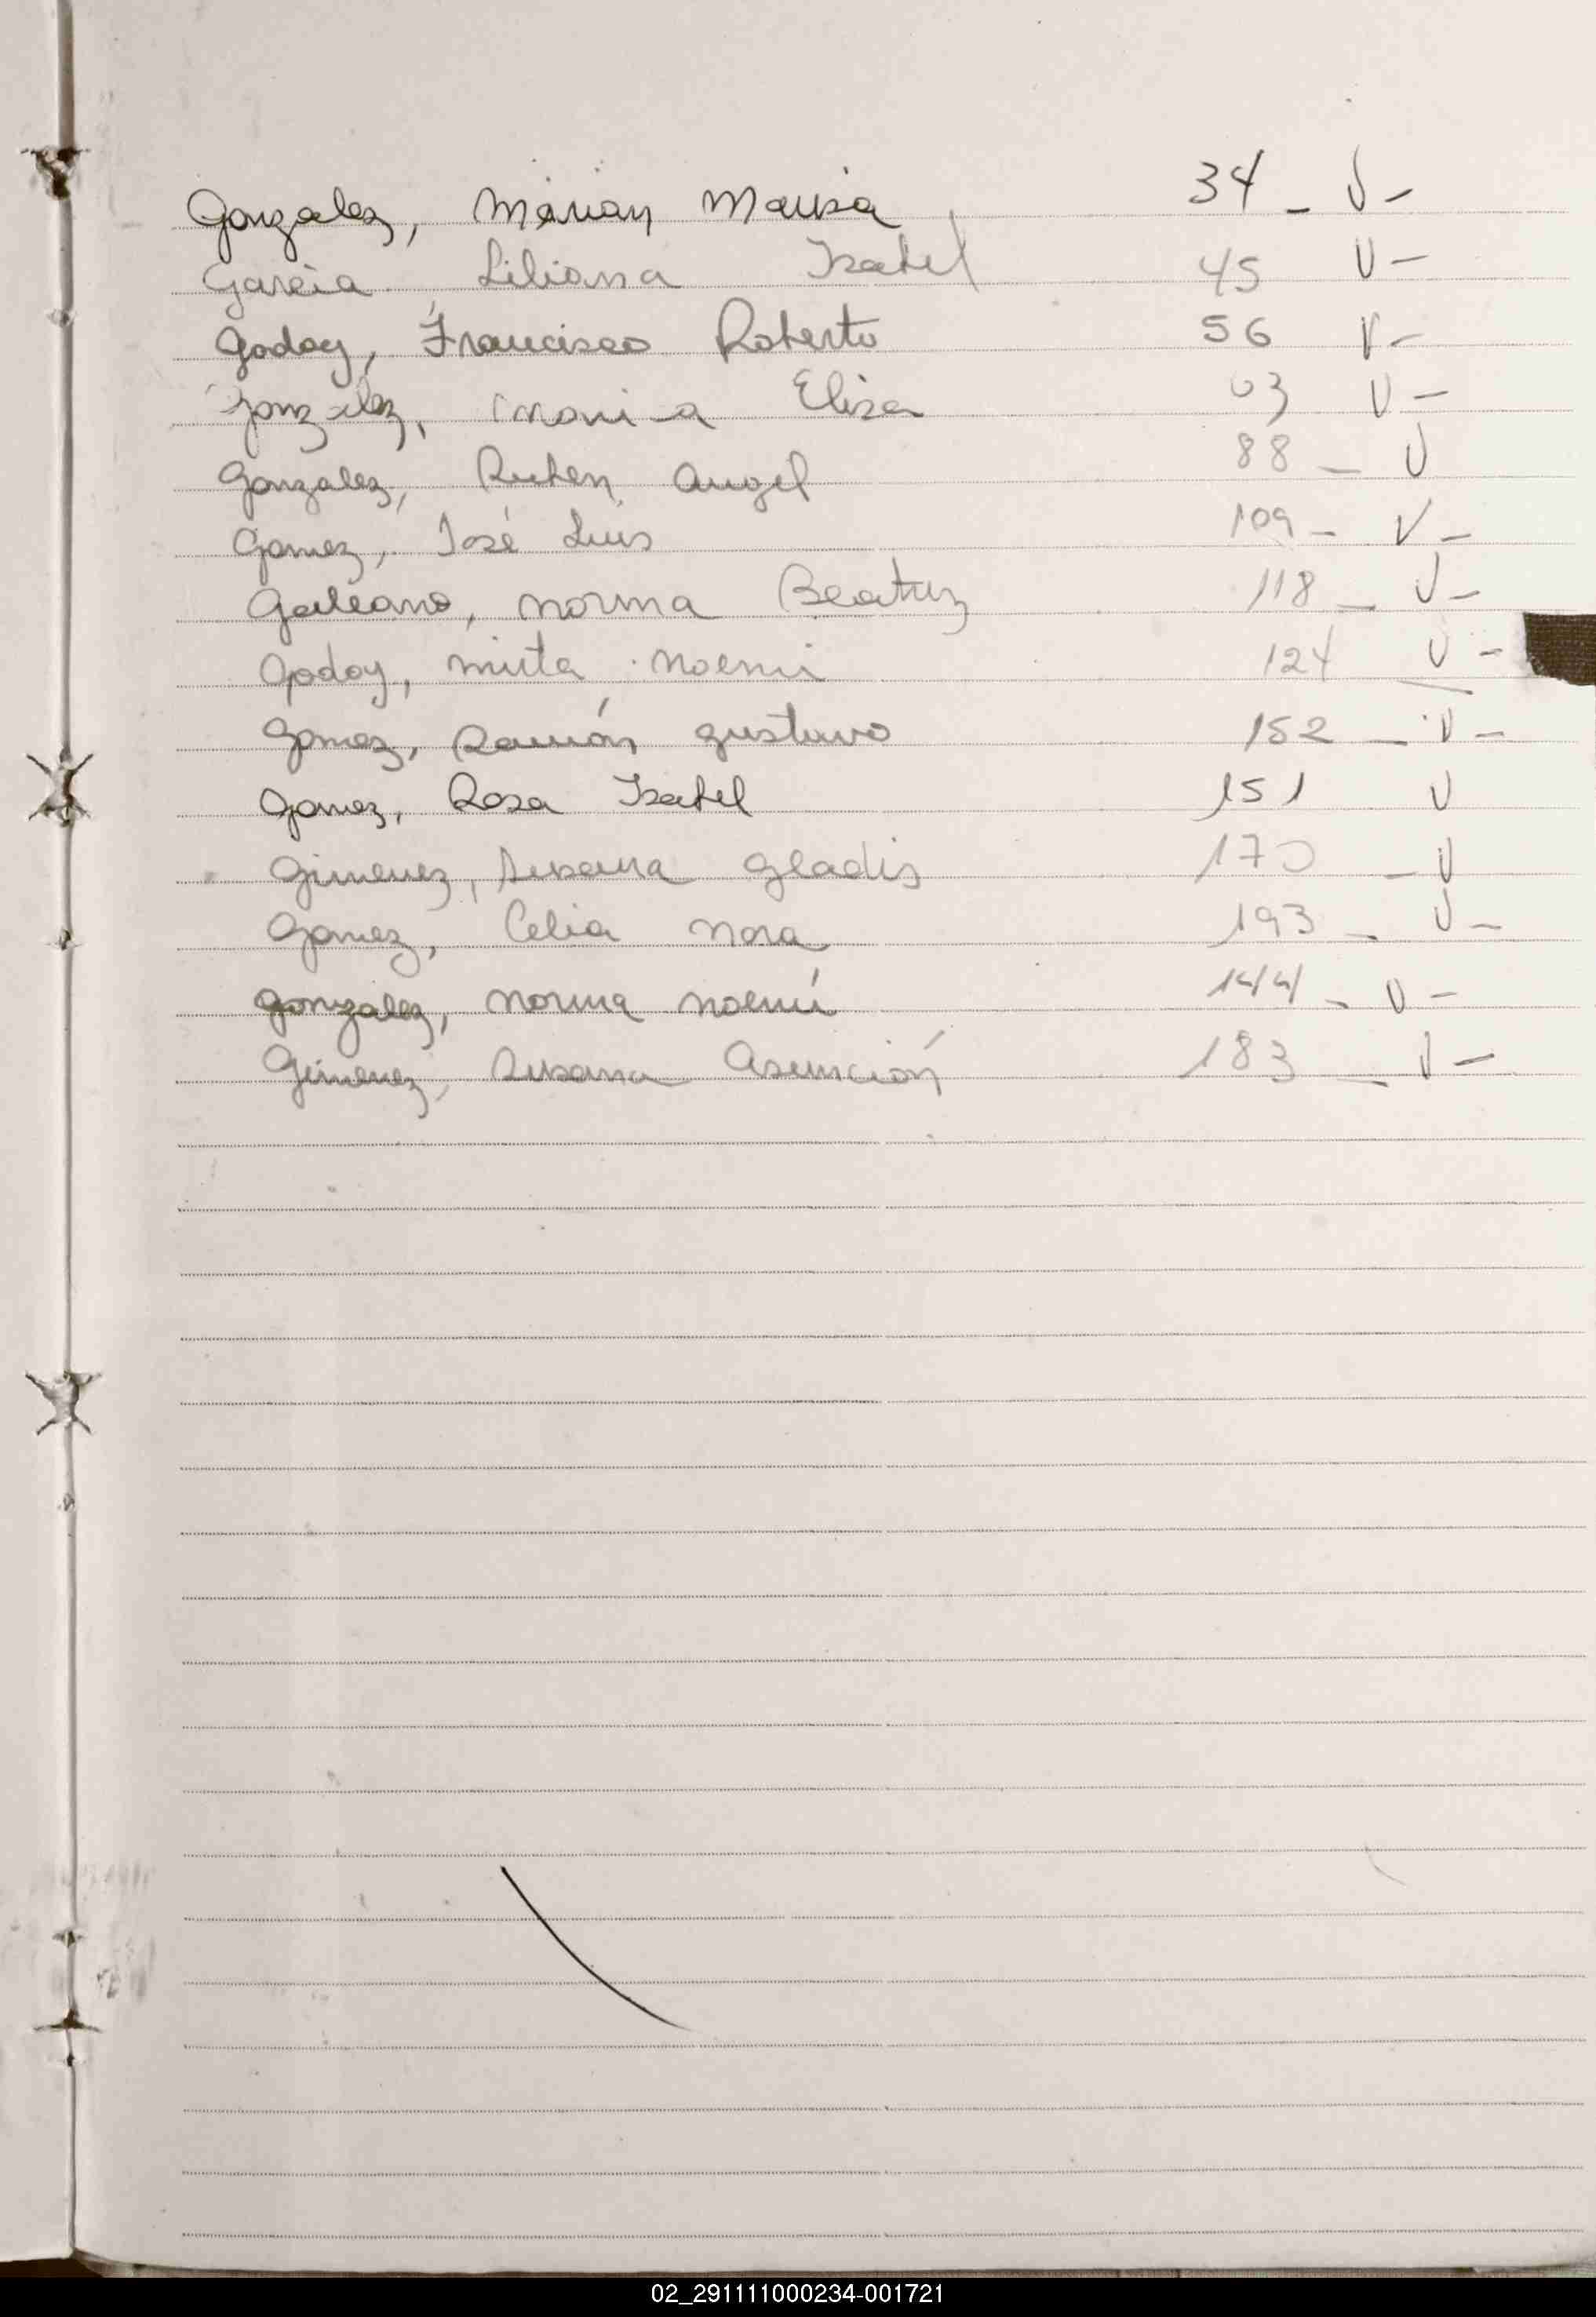 Gonzalez, Mirian Marisa 34 - V -
Garcia Liliana Isabel 45 V -
Godoy, Francisco Roberto 56 V -
Gonzalez, Moni a Elisa 63 V -
Gonzalez, Ruben Angel 88 - V
Gomez, José Luis 109 - V -
Galeano, Norma Beatriz 118 - V -
Godoy, Mirta Noemi 124 V -
Gomez, Ramón Gustavo 152 - V -
Gomez, Rosa Isabel 151 V
Gimenez, Susana Gladis 170 - V
Gomez, Celia Nora 193 - V -
Gonzalez, Norma Noemí 144 - V -
Gimenez, Susana Asunción 183 - V -
02_291111000234-001721